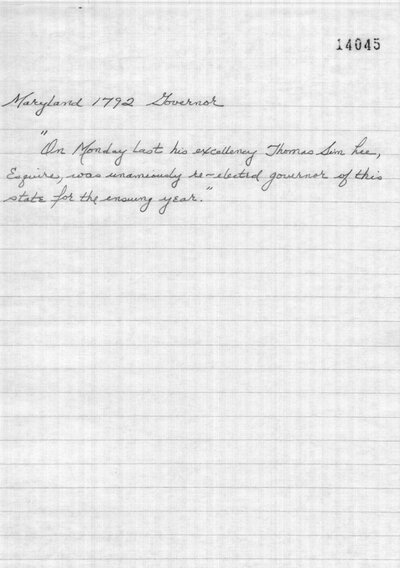 14045
Maryland 1792 Governor
"On Monday last his excellency Thomas Sim Lee,
Esquire, was unamiously re-elected governor of this
state for the ensuing year."